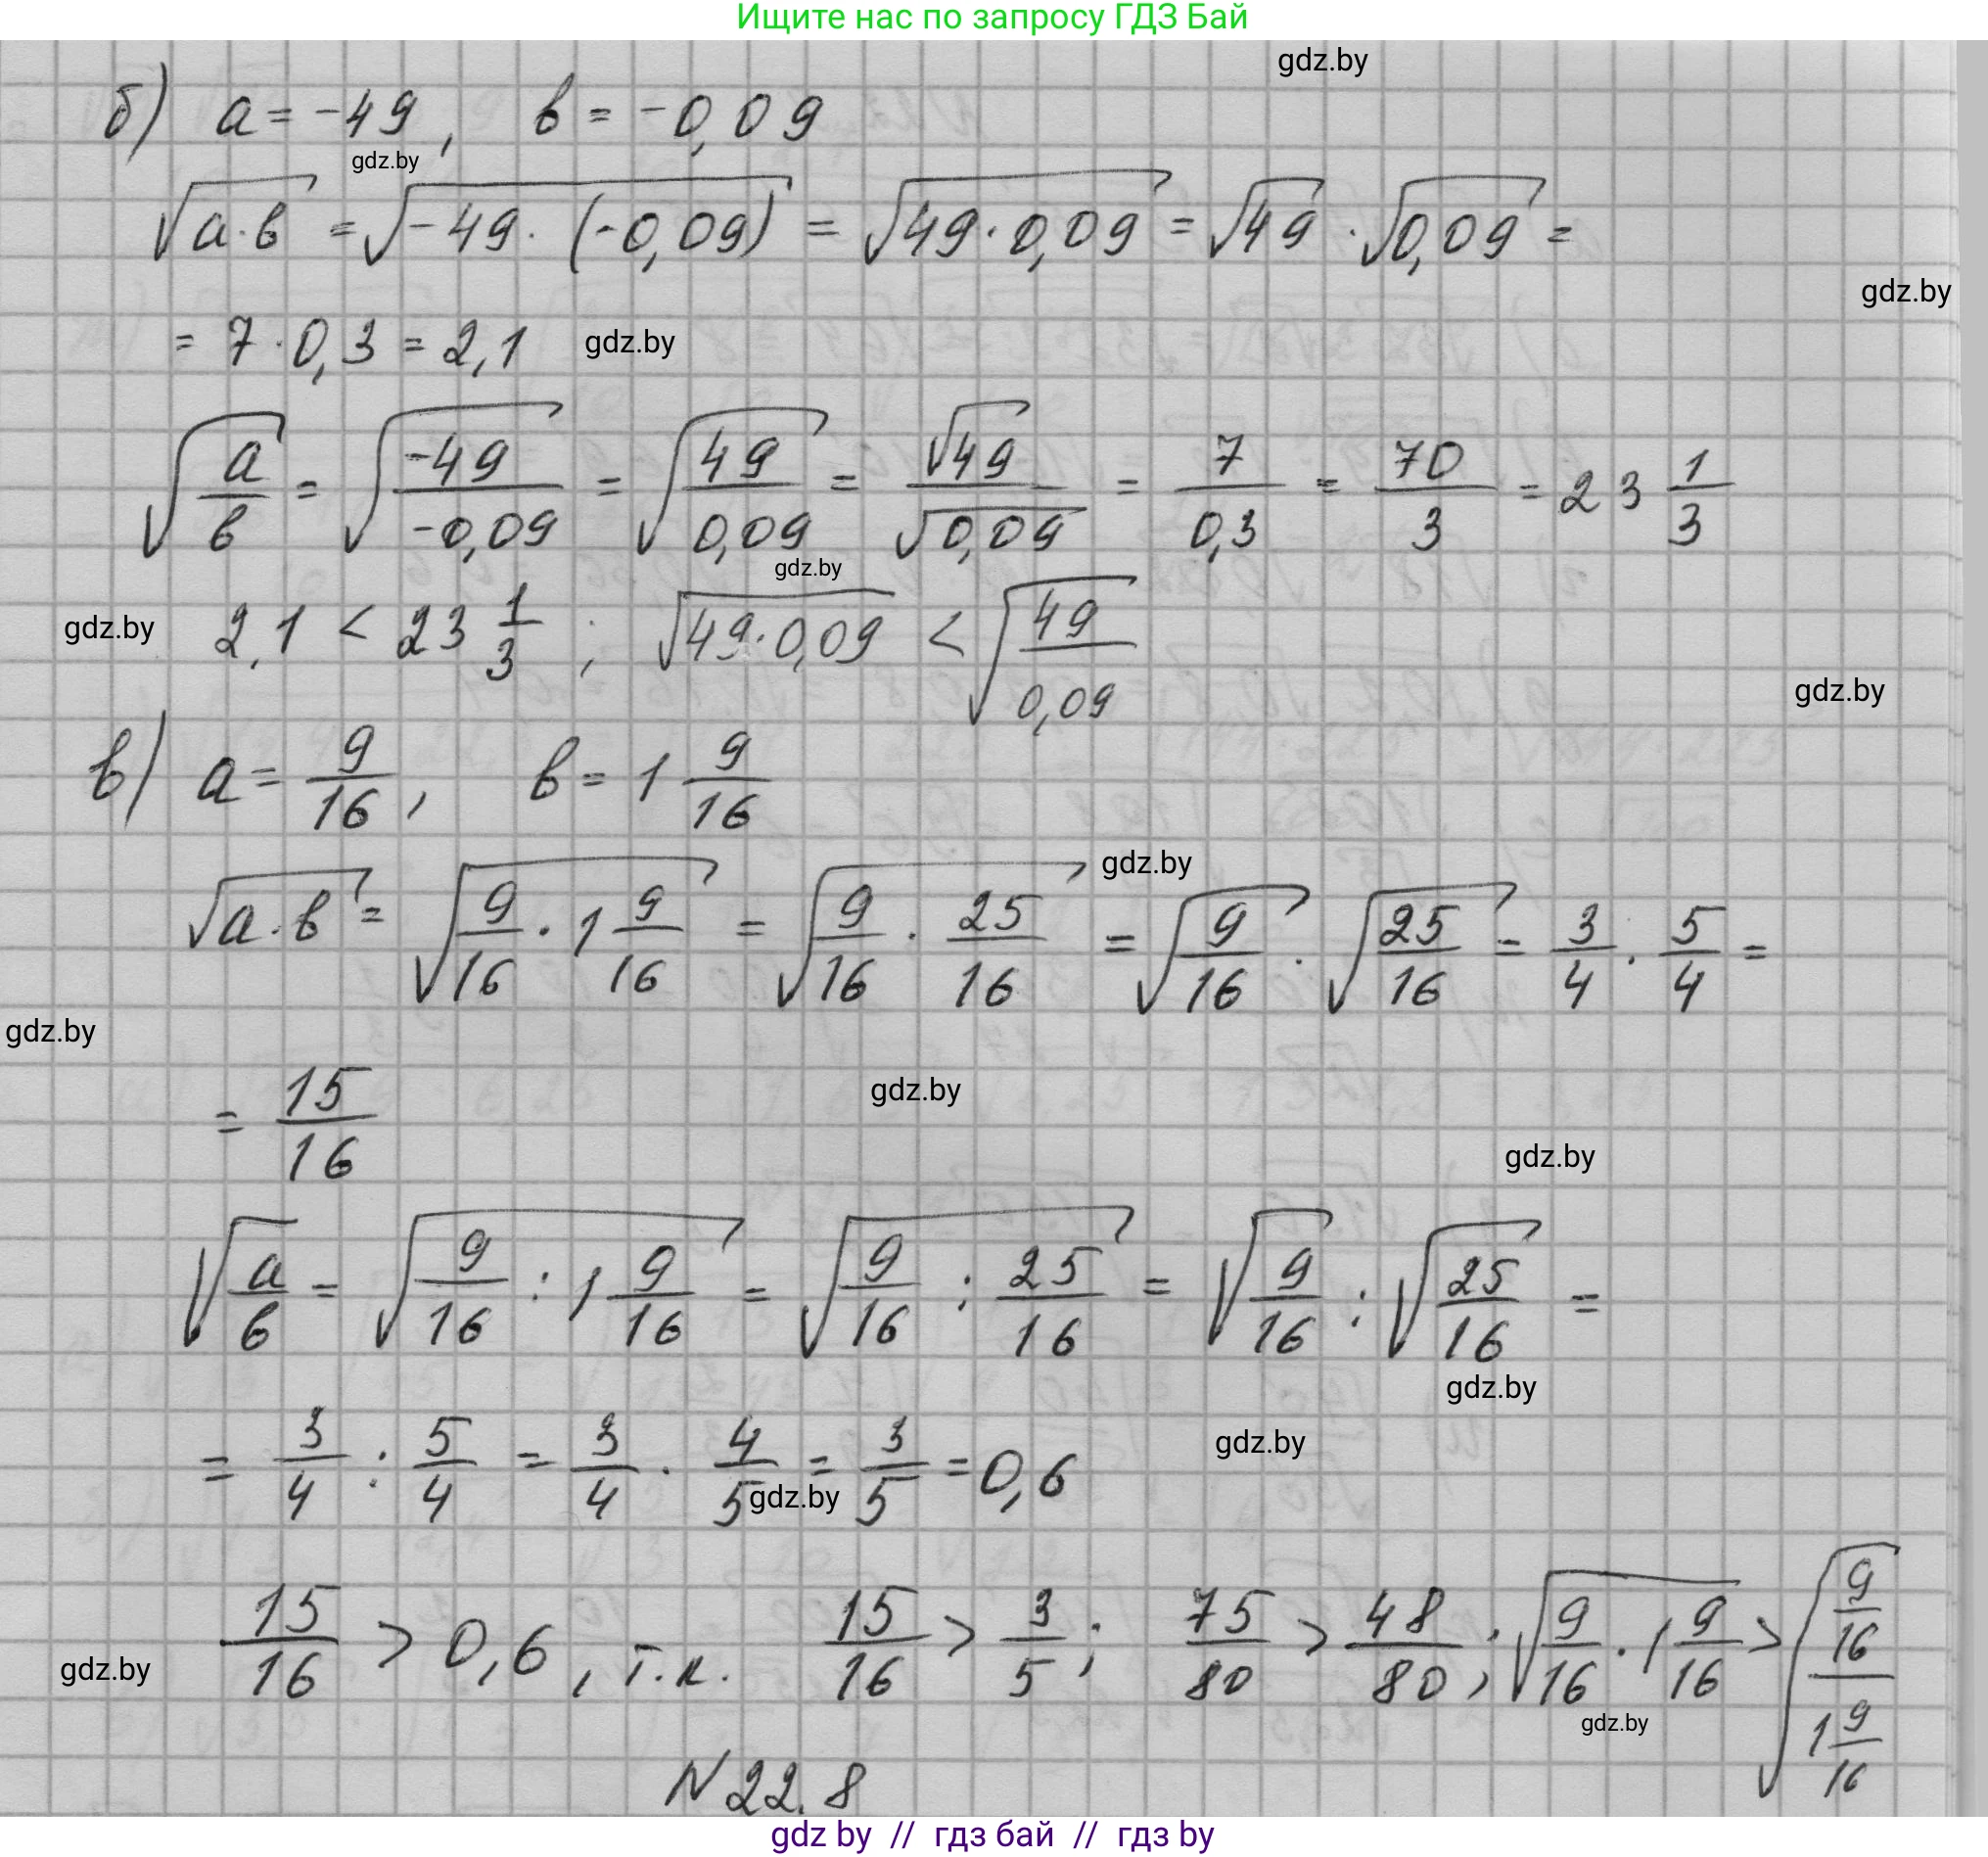 Ищите нас по запросу ГДЗ Бай
gdz.by
б) a = -49, b = -0,09
gdz.by
√(a·b) = √(-49·(-0,09)) = √(49·0,09) = √49 · √0,09 =
gdz.by
= 7·0,3 = 2,1
gdz.by
√(a/b) = √(-49/-0,09) = √(49/0,09) = √49/√0,09 = 7/0,3 = 70/3 = 23 1/3
gdz.by
gdz.by
2,1 < 23 1/3 ; √(49·0,09) < √(49/0,09)
gdz.by
в) a = 9/16, b = 1 9/16
gdz.by
√(a·b) = √(9/16 · 1 9/16) = √(9/16 · 25/16) = √(9/16) · √(25/16) = 3/4 · 5/4 =
gdz.by
gdz.by
= 15/16
gdz.by
√(a/b) = √(9/16 : 1 9/16) = √(9/16 : 25/16) = √(9/16) : √(25/16) =
gdz.by
gdz.by
= 3/4 : 5/4 = 3/4 · 4/5 = 3/5 = 0,6
gdz.by
15/16 > 0,6, т.к. 15/16 > 3/5; 75/80 > 48/80; √(9/16 · 1 9/16) > √((9/16)/(1 9/16))
gdz.by
gdz.by
N 22.8
gdz by // гдз бай // гдз by